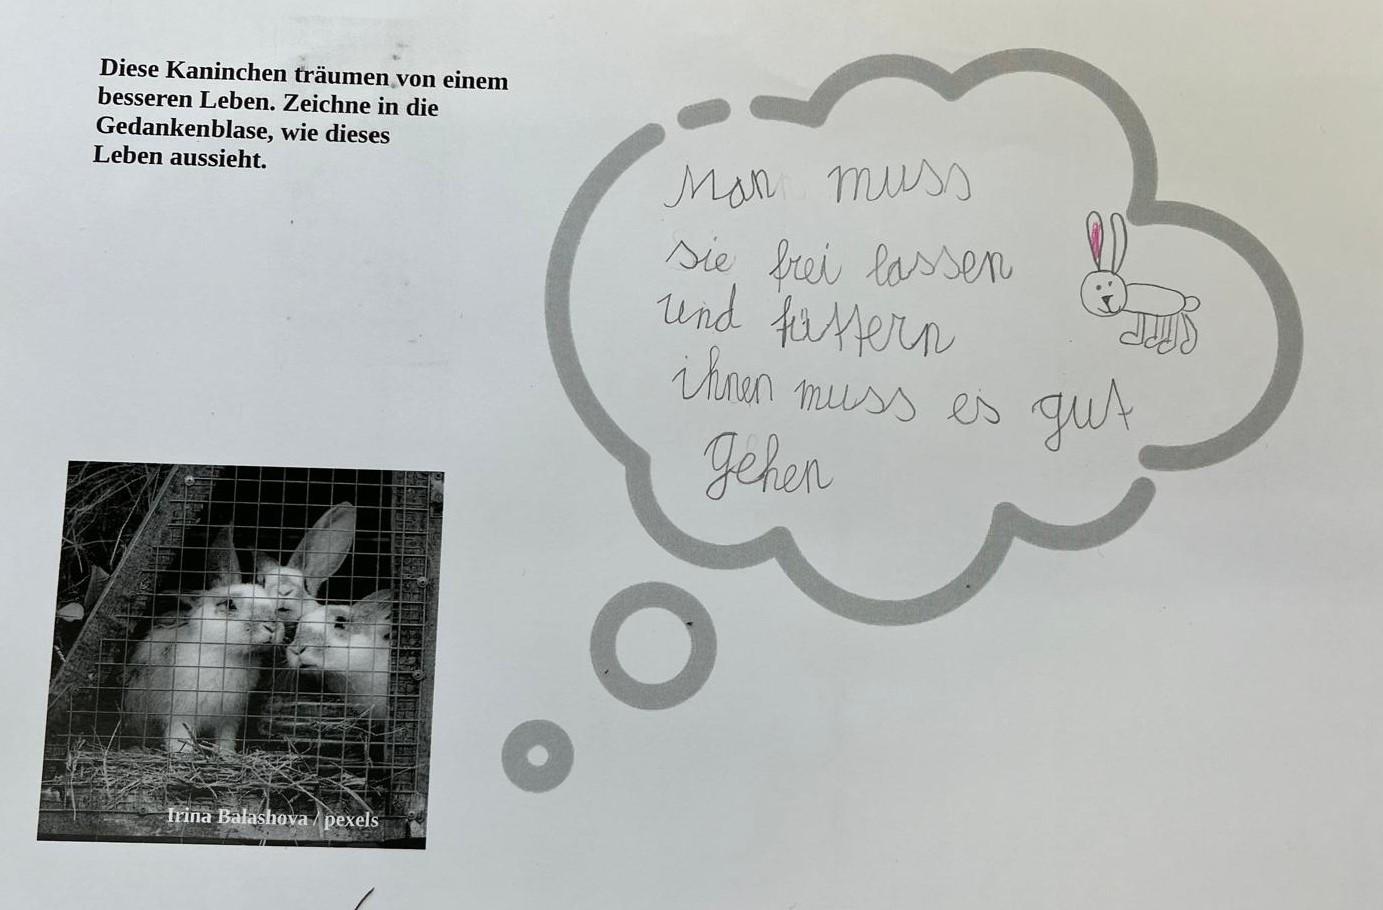 Diese Kaninchen träumen von einem
besseren Leben. Zeichne in die
Gedankenblase, wie dieses
Leben aussieht.
Man muss
sie frei lassen
und füttern
ihnen muss es gut
gehen
Irina Balashova / pexels